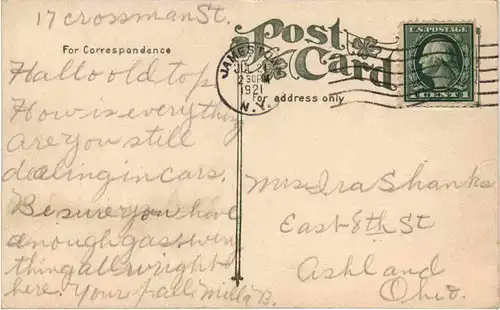 17 crossman St.
Post Card
For Correspondence
for address only
JAMEST
JUL 2
2 30 P
1921
N.Y.
U.S. POSTAGE
1 CENT 1
Hallo old top
How is everything
are you still
dealing in cars.
Be sure you have
enough gas + every
thing all wright
here. your pall, Milly B.
Mrs Ira Shanks
East-8th St
Ashland
Ohio.